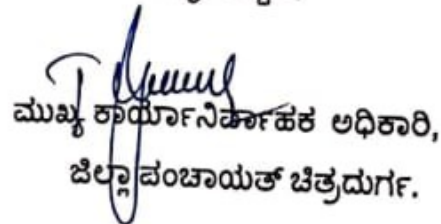 ಮುಖ್ಯ ಕಾರ್ಯಾನಿರ್ವಾಹಕ ಅಧಿಕಾರಿ,
ಜಿಲ್ಲಾ ಪಂಚಾಯತ್ ಚಿತ್ರದುರ್ಗ.